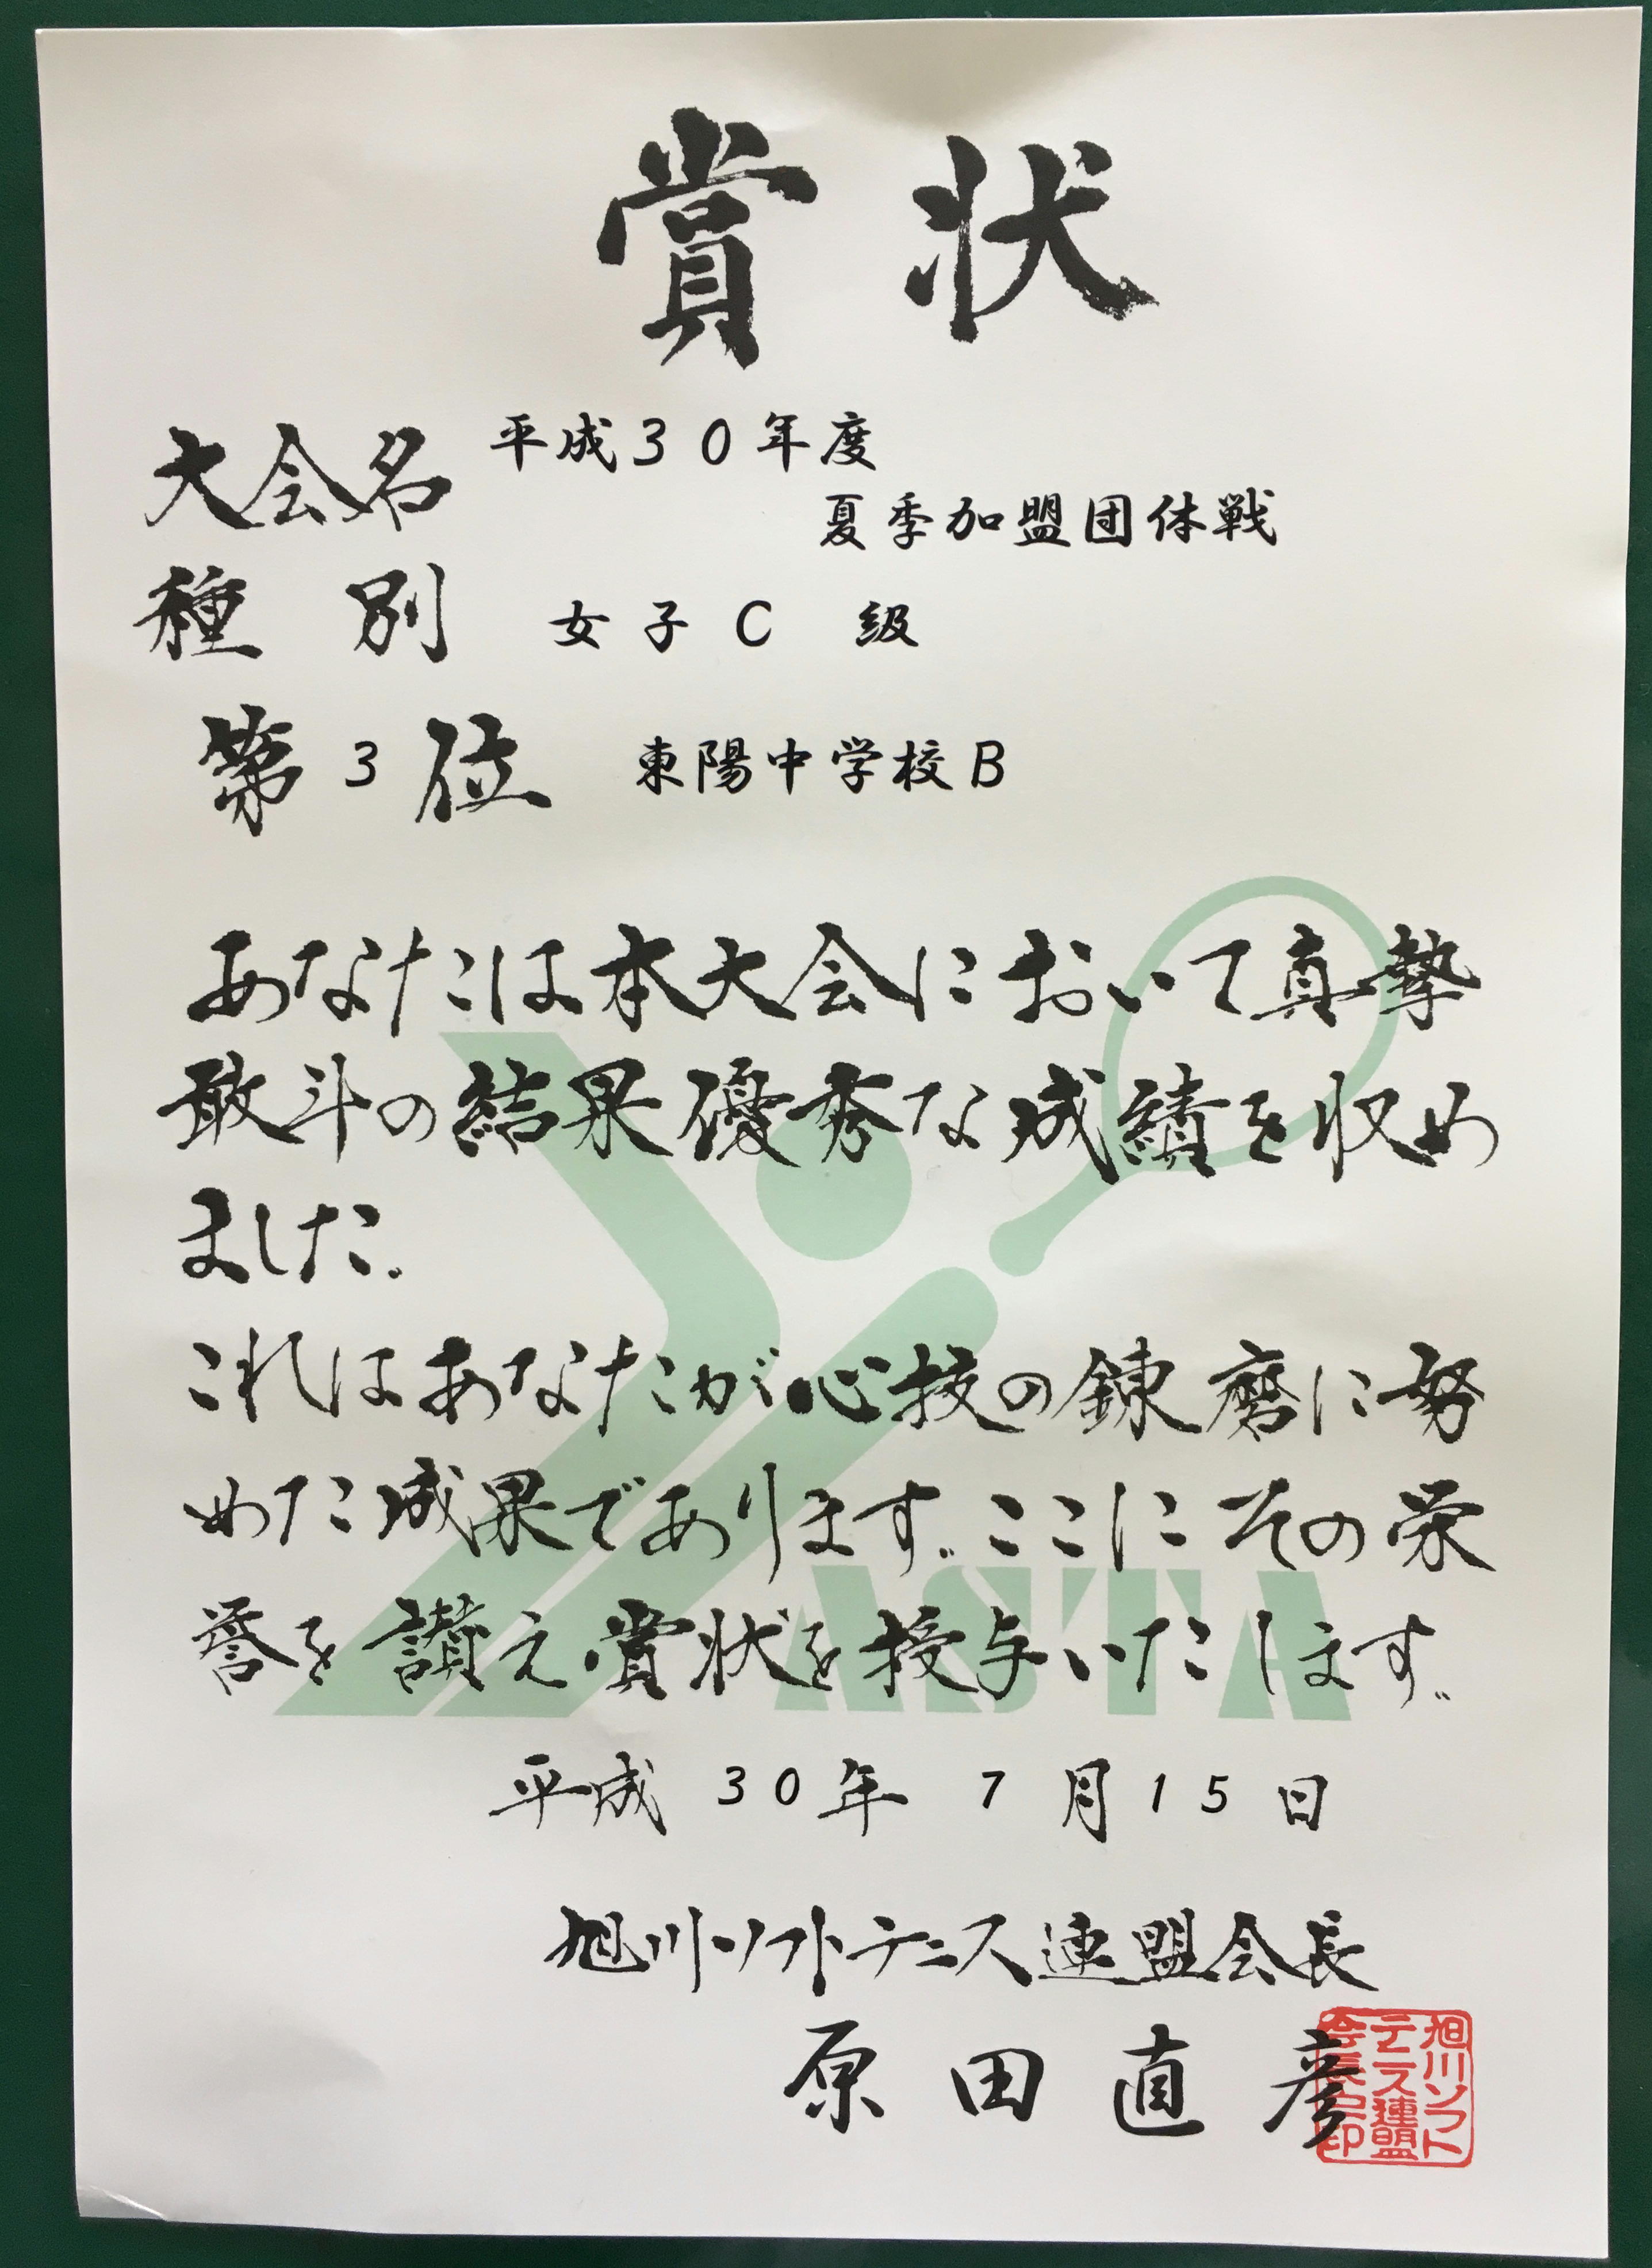 賞状
大会名 平成30年度
夏季加盟団体戦
種別 女子C 級
第3位 東陽中学校B
あなたは本大会において真摯
敢斗の結果優秀な成績を収め
ました。
これはあなたが心技の錬磨に努
めた成果であります。ここにその栄
誉を讃え賞状を授与いたします。
ASTA
平成30年7月15日
旭川ソフトテニス連盟会長
原田直彦
旭川ソフト
テニス連盟
会長之印